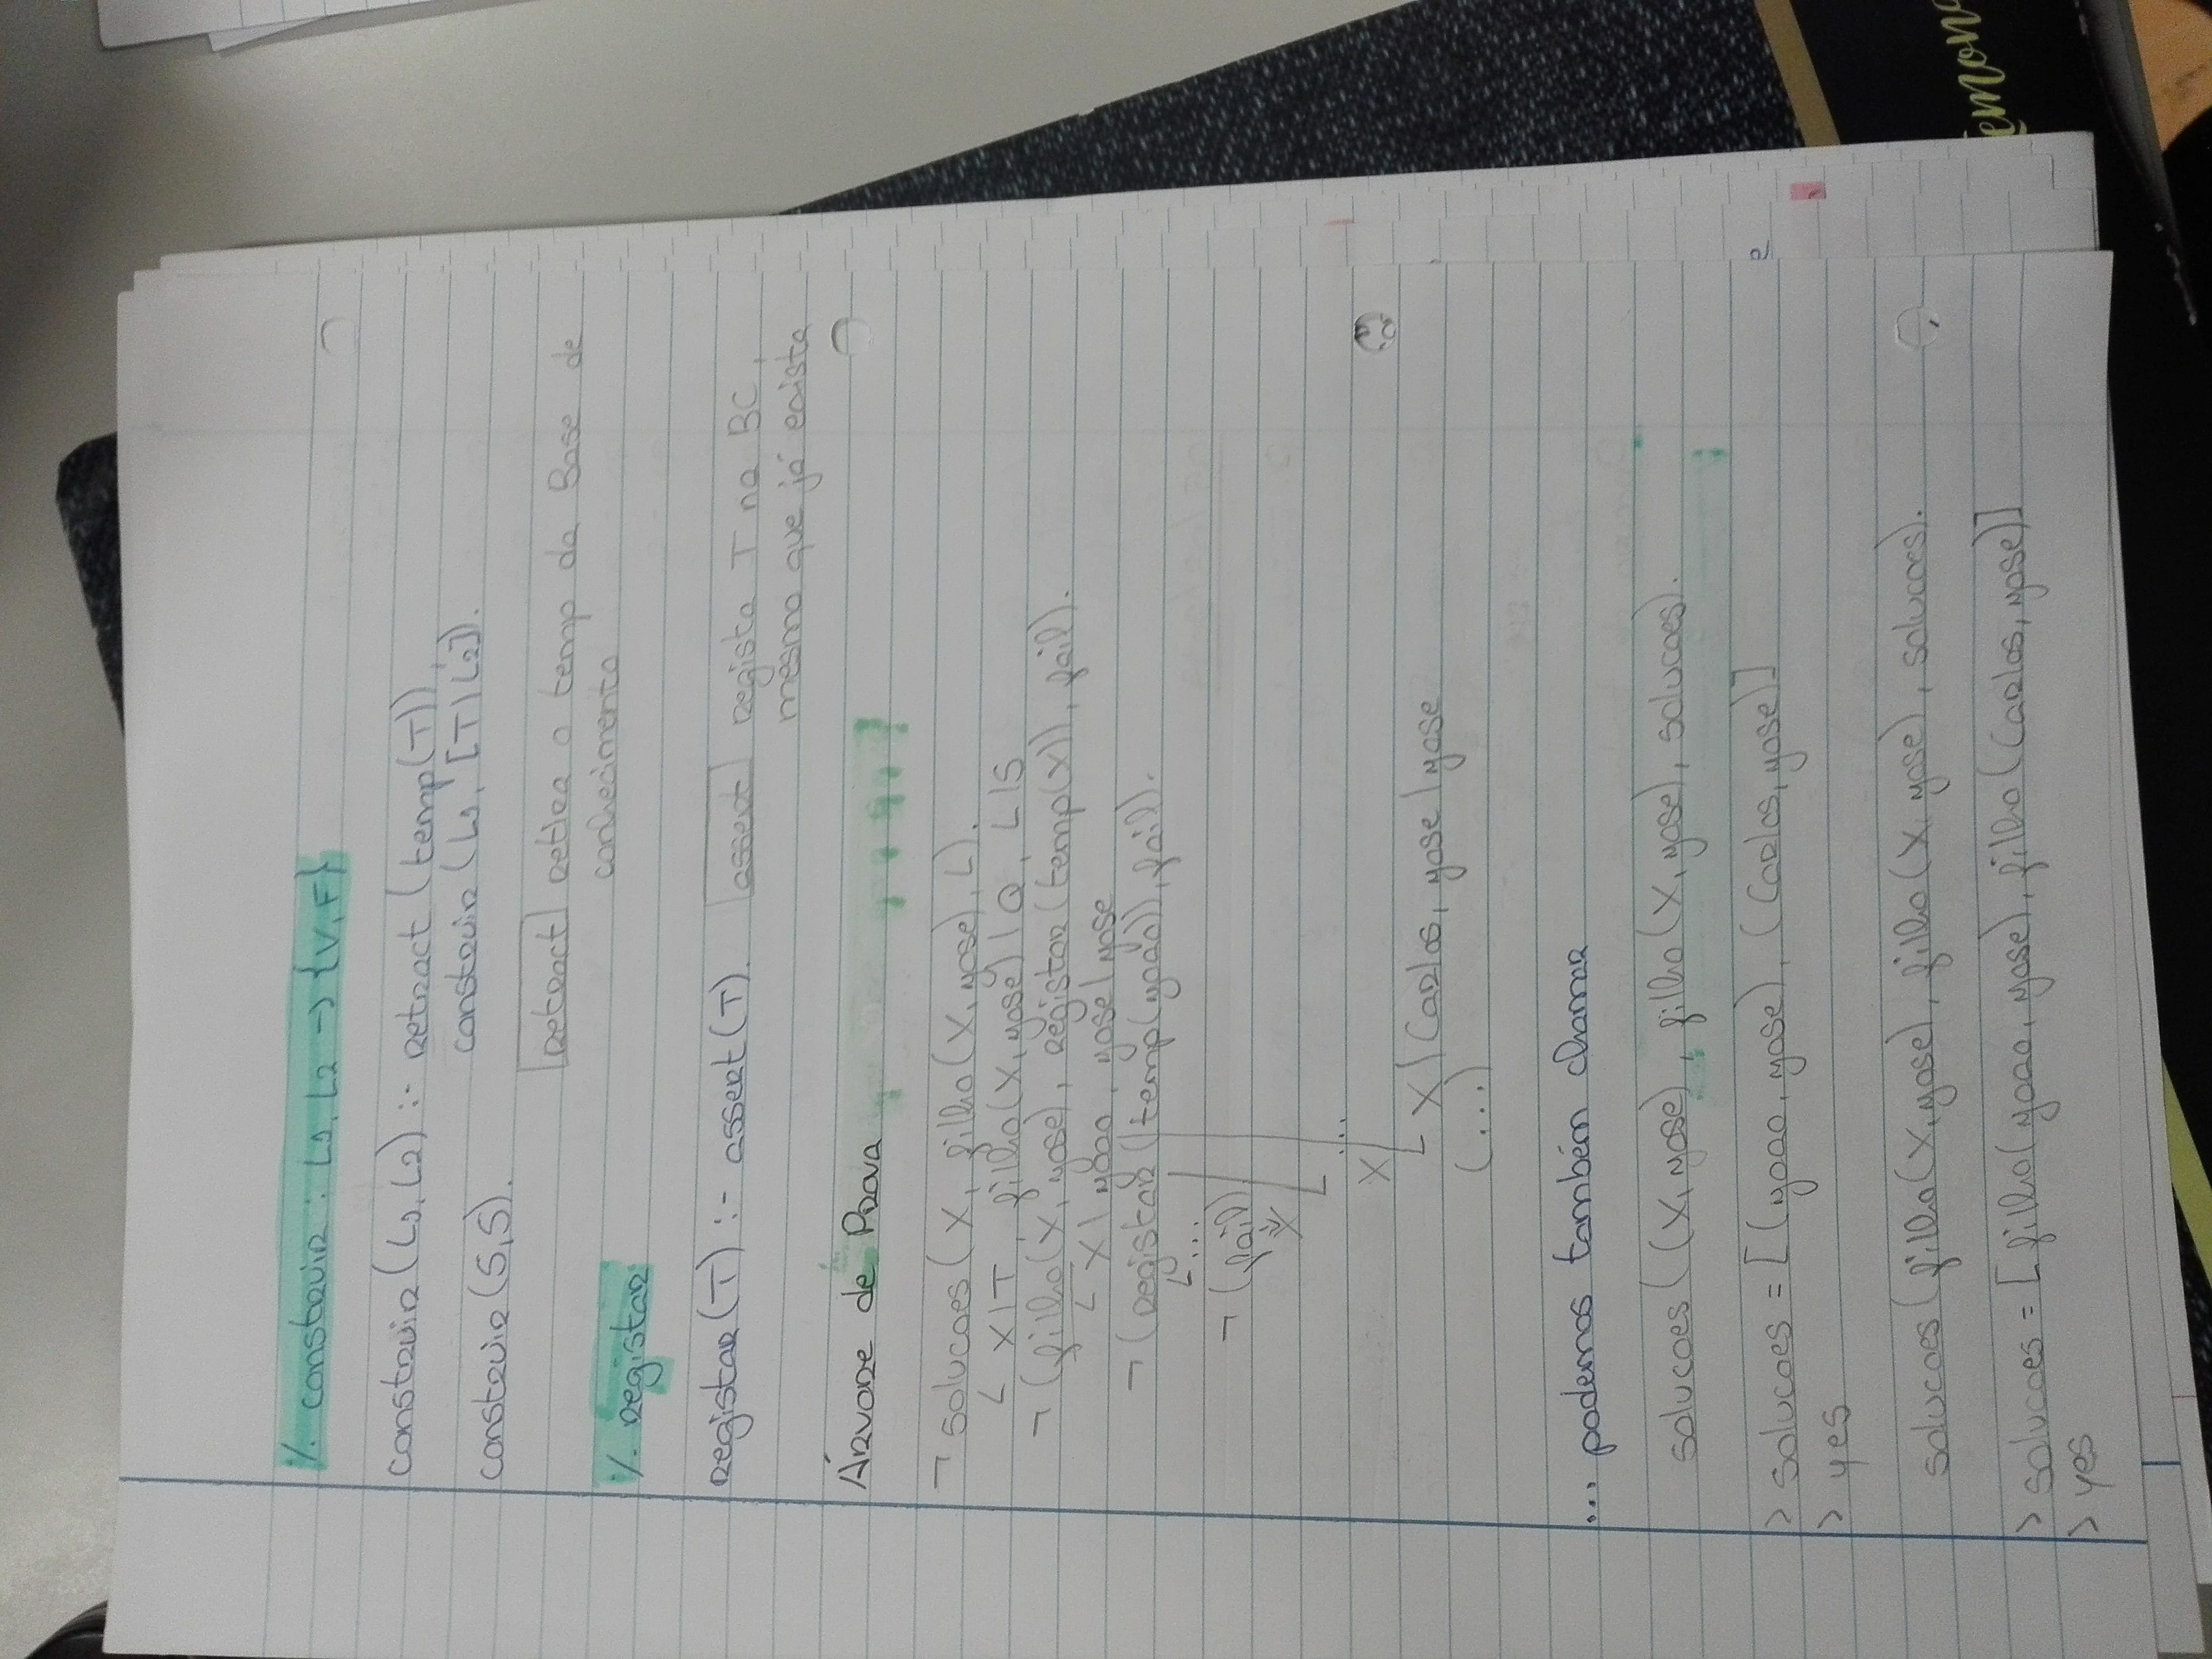 %. construir : L1, L2 -> {V,F}
construir (L1, L2) :- retract (temp(T)),
construir (L1, [T|L2]).
construir (S,S).
retract retira o temp da Base de
conhecimento
%. registar
registar (T) :- assert (T). assert regista T na BC,
mesmo que já exista
Árvore de Prova
¬ solucoes (X, filho (X, jose), L).
X|T, filho (X, jose) | Q, L|S
¬ (filho (X, jose), registar (temp (X)), fail).
X| joao, jose|jose
¬ (registar (temp (joao)), fail).
...
¬ (fail)
X
...
X
X| Carlos, jose|jose
(...)
... podemos também chamar
solucoes ((X, jose), filho (X, jose), solucoes).
> solucoes = [(joao, jose), (Carlos, jose)]
> yes
solucoes (filho (X, jose), filho (X, jose), solucoes).
> solucoes = [filho (joao, jose), filho (Carlos, jose)]
> yes
e